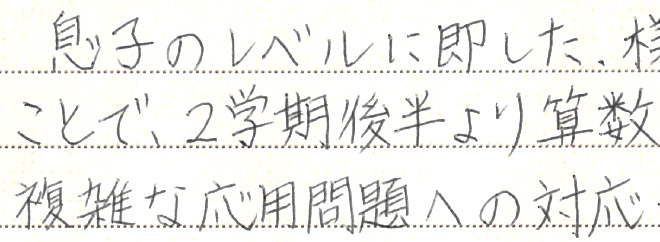 息子のレベルに即した、様
ことで、2学期後半より算数
複雑な応用問題への対応